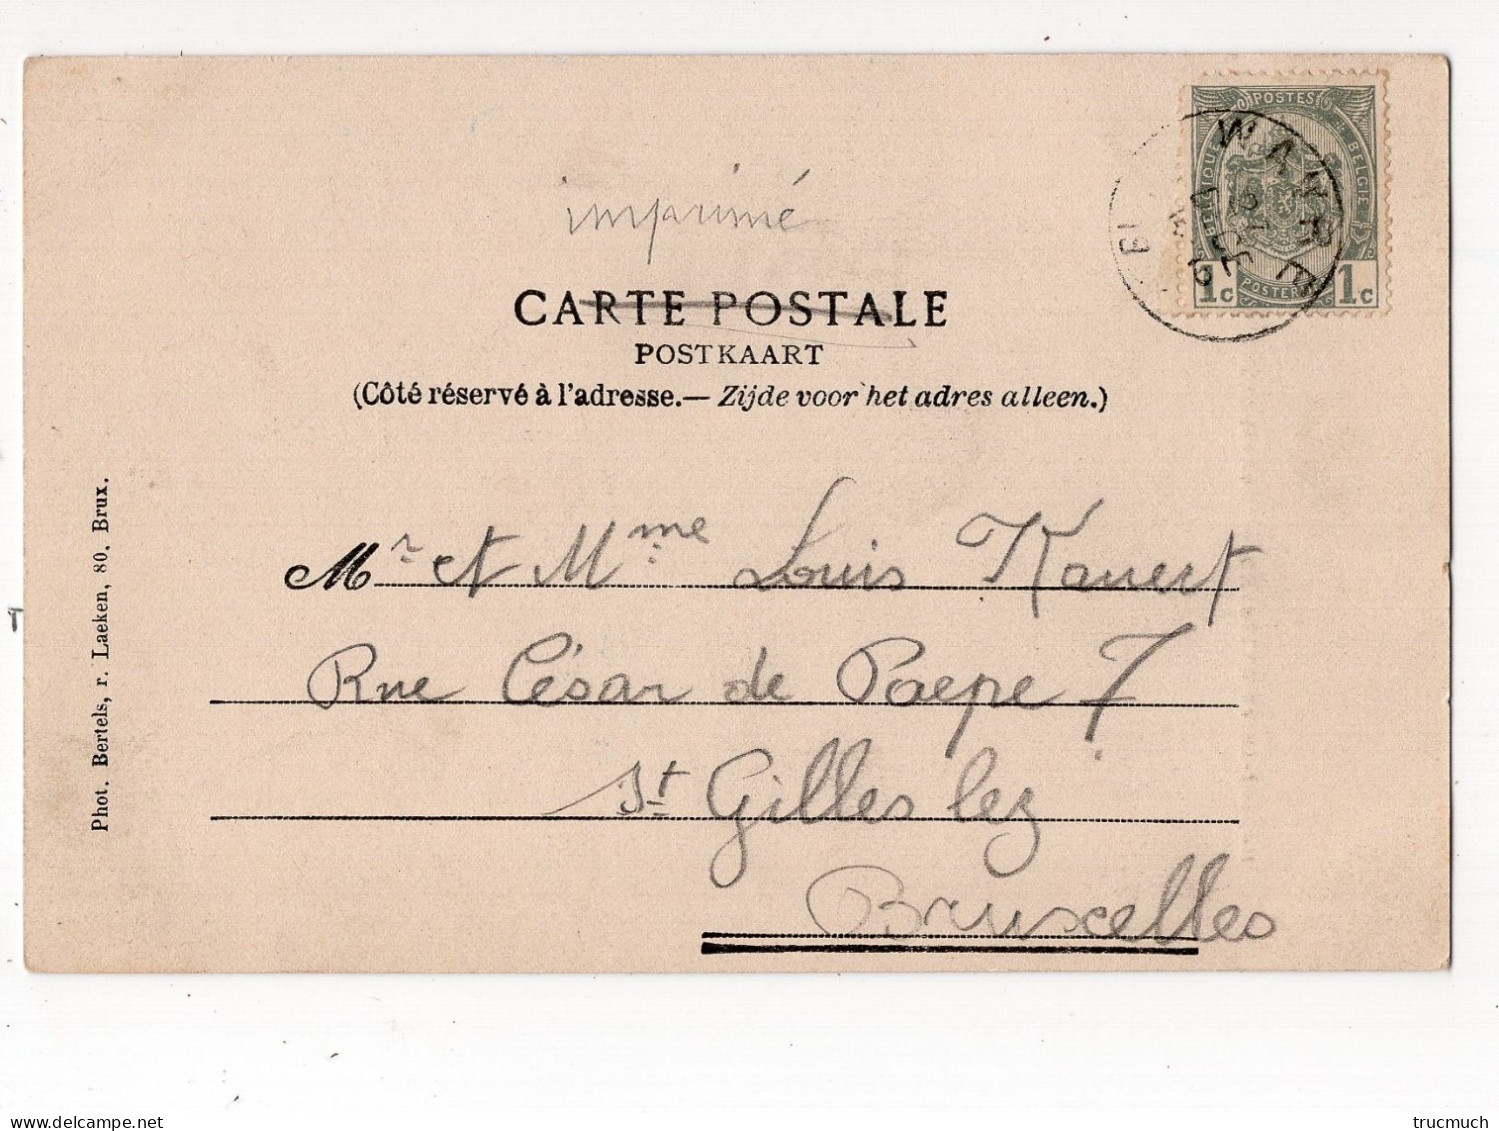 POSTES
BELGIQUE
BELGIE
1c
1c
WAVRE
imprimé
CARTE POSTALE
POSTKAART
(Côté réservé à l'adresse.— Zijde voor het adres alleen.)
Mr et Mme Louis Kauert
Rue César de Paepe 7
St Gilles lez
Bruxelles
Phot. Bertels, r. Laeken, 80, Brux.
www.delcampe.net
trucmuch